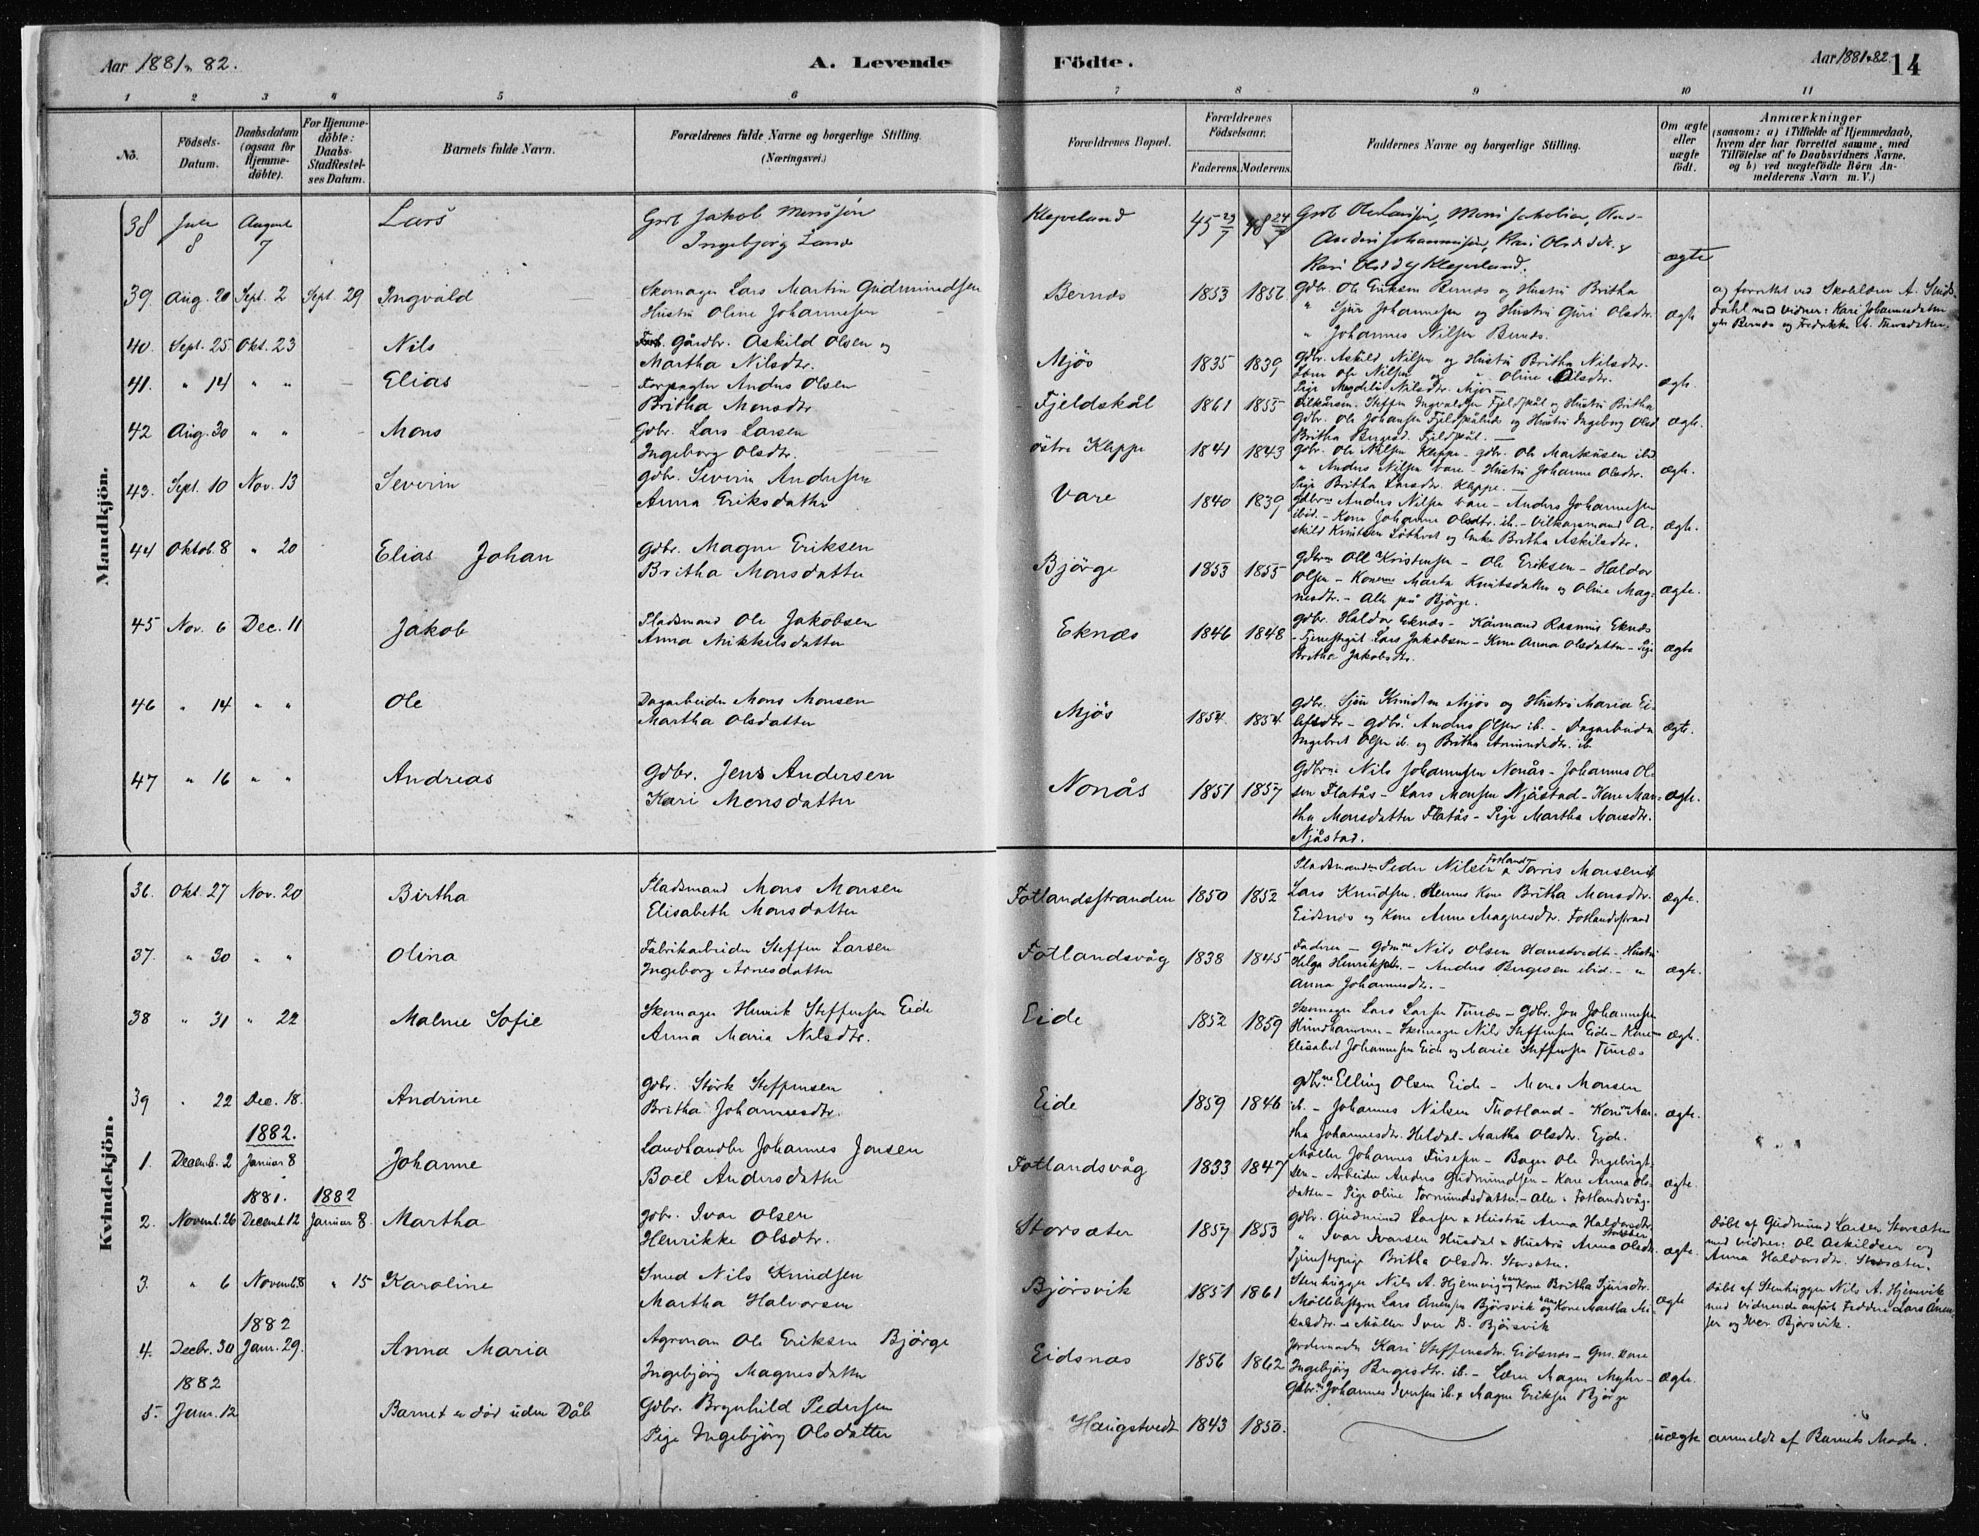 Aar 1881 & 82.
A. Levende
Födte.
Aar 1881 & 82
14
1 2 3 4 5 6 7 8 9 10 11
No.
Födsels-Datum.
Daabsdatum (ogsaa for Hjemme-döbte).
For Hjemme-döbte: Daabs-Stadfæstel-ses Datum.
Barnets fulde Navn.
Forældrenes fulde Navne og borgerlige Stilling. (Næringsvei.)
Forældrenes Bopæl.
Forældrenes Födselsaar.
Faderens. Moderens.
Faddernes Navne og borgerlige Stilling.
Om ægte eller uægte födt.
Anmærkninger (saasom: a) i Tilfælde af Hjemmedaab, hvem der har forrettet samme, med Tilföielse af to Daabsvidners Navne, og b) ved uægtefödte Börn Anmelderens Navn m. V.)
Mandkjön.
38 Juli 8 August 7 Lars
Jakob Monssøn
Ingebjørg Larsd
Klepveland 45 29/7 48 ægte
39. Aug. 20 Sept. 2 Sept. 29 Ingvald
Skomager Lars Martin Gudmundsen
Hustru Oline Johannesen
Bernæs 1853 1856
Gdbr. Ole Eriksen Bernæs og Hustru Britha
" Sjur Johannesen og Hustru Guri Olsdtr.
" Johannes Nilsen Bernæs.
ægte
40. Sept. 25 Okt. 23 Nils
Gårdbr. Askild Olsen og
Martha Nilsdtr.
Mjös 1835 1839
Gdbr. Askild Nilsen og Hustru Britha Nilsdtr.
Pige Magdeli Nilsdtr. Mjös
ægte.
41. " 14 " " Elias
Forpagter Anders Olsen
Britha Monsdtr
Fjeldskål 1861 1855
Gdbr. Ole Johansen Fjeldskålnes og Hustru Ingeborg Olsd
ægte.
42 Aug. 30 " " Mons
Gdbr. Lars Larsen
Ingeborg Olsdtr.
östre Kleppe 1841 1843
Gdbr. Ole Nilsen Kleppe - gdbr. Ole Markusen ibid
" Anders Nilsen Vare - Hustru Johanne Olsdtr.
Pige Britha Larsdtr. Kleppe.
ægte.
43. Sept. 10 Nov. 13 Severin
Gdbr. Severin Andersen
Anna Eriksdatter
Vare 1840 1839
Gdbrne Anders Nilsen Vare - Anders Johannesen
ibid. - Kone Johanne Olsdtr. ib. - Vilkårsmand A-
skild Knutsen Löthveit og Enke Britha Askilsdtr.
ægte.
44 Oktob. 8 " 20 Elias Johan
Gdbr. Magne Eriksen
Britha Monsdatter
Bjørge 1853 1855
Gdbrne Ole Kristensen - Ole Eriksen - Haldor
Olsen - Konerne Marta Knutsdatter og Oline Mag-
nesdtr. - Alle på Bjørge.
ægte.
45 Nov. 6 Dec. 11 Jakob
Pladsmand Ole Jakobsen
Anna Mikkelsdatter
Eknæs 1846 1848
Gdbr. Haldor Eknæs - Kårmand Rasmus Eknæs
- Tjenestegut Lars Jakobsen - Kone Anna Olsdatter - Pige
Britha Jakobsdtr.
ægte
46 " 14 " " Ole
Dagarbeider Mons Monsen
Martha Olsdatter
Mjös 1854 1854
Gdbr. Sjur Knudsen Mjös og Hustru Maria Ei-
lefsdtr - Gdbr. Anders Olsen ib. - Dagarbeider
Ingebret Olsen ib. og Britha Amundsdtr. ib.
ægte.
47 " 16 " " Andreas
Gdbr. Jens Andersen
Kari Monsdatter
Nonås 1851 1857
Gdbrne Nils Johannesen Nonås - Johannes Ol-
sen Flatås - Lars Monsen Njåstad - Kone Mar-
tha Monsdatter Flatås - Pige Martha Monsdtr.
Njåstad.
ægte.
Kvindekjön.
36. Okt. 27 Nov. 20 Birtha
Pladsmand Mons Monsen
Elisabeth Monsdatter
Fotlandsstranden 1850 1852
Pladsmanden Peder Nilsen Fotland & Torris Monsen ib
Lars Knudsen Hennes Kone Britha Monsdtr.
Eidsnæs og Kone Anne Magnesdtr. Fotlandsstrand
ægte.
37. " 30 " " Olina
Fabrikarbeider Steffen Larsen
Ingeborg Arnesdatter
Fotlandsvåg 1838 1845
Faderen - Gdmne Nils Olsen Hanstvedt - Hustru
Helga Henriksdtr. - Anders Brigesen ibid. - "
Anna Johannesdtr. -
ægte.
38 " 31 " 22 Malene Sofie
Skomager Henrik Steffensen Eide
Anna Maria Nilsdtr.
Eide 1852 1859
Skomager Lars Larsen Tunæs - Gdbr. Jon Johannesen
Hundhammer - Skomager Nils Steffensen Eide - Kone
Elisabet Johannesen Eide og Marie Steffensen Tunæs
ægte.
39 " 22 Dec. 18. Andrine
Gdbr. Störk Steffensen
Britha Johannesdtr.
Eide 1859 1846
Gdbrne Elling Olsen Eide - Mons Monsen
ib. - Johannes Nilsen Thotland - Kone Mar-
tha Johannesdtr. Heldal - Martha Olsdtr. Eide.
ægte.
1882.
1. Decemb. 2 Januar 8 Johanne
Landhandler Johannes Jonsen
Boel Andersdatter
Fotlandsvåg 1833 1847
Möller Johannes Fusesen - Bager Ole Ingebrigt-
sen - Arbeider Anders Gudmundsen - Kone Anna Ols-
datter - Pige Oline Tormundsdatter - Alle i Fotlandsvåg.
ægte.
1881. 1882
2. Novemb. 26 Decemb. 12 Januar 8. Martha
Gdbr. Ivar Olsen
Henrikke Olsdtr.
Storsæter 1857 1853
Gdbr. Gudmund Larsen & Hustru Anna Haldorsdtr.
" Ivar Ivarsen Husdal & Hustru Anna Olsdtr.
Tjenestepige Britha Olsdtr. Storsæter.
ægte.
Döbt af Gudmund Larsen Storsæter
med vidner: Ole Askildsen og
Anna Haldorsdtr. Storsæter.
3. " 6 Novemb. 8 " 15 Karoline
Smed Nils Knudsen
Martha Halvorsen
Bjørsvik 1851 1861
Stenhugger Nils A. Hjemvig og Kone Britha Sjursdtr.
Möllebestyrer Lars Ånensen Bjørsvik og Kone Martha Mi-
kalsdtr. - Möller Iver B. Bjørsvik
ægte
Döbt af Stenhugger Nils A. Hjemvik
med vidnerne anförte Faddere Lars Ånen-
sen og Iver Bjørsvik.
1882
4. Decbr. 30 Janr. 29. Anna Maria
Agronom Ole Eriksen Bjørge
Ingebjørg Magnesdatter
Eidsnæs 1856 1862
Jordemoder Kari Steffensdtr. Eidsnæs - Gm. Kone
Ingebjørg Brigesdtr. ib. - Lærer Magne Myhr -
Gdbrne Johannes Iversen ib. & Magne Eriksen Bjørge
ægte.
1882
5. Janr. 12 Barnet er död uden Dåb
Gdbr. Brynhild Pedersen
Pige Ingebjørg Olsdatter
Haugstvedt 1843 1850.
uægte
anmeldt af Barnets Moder.